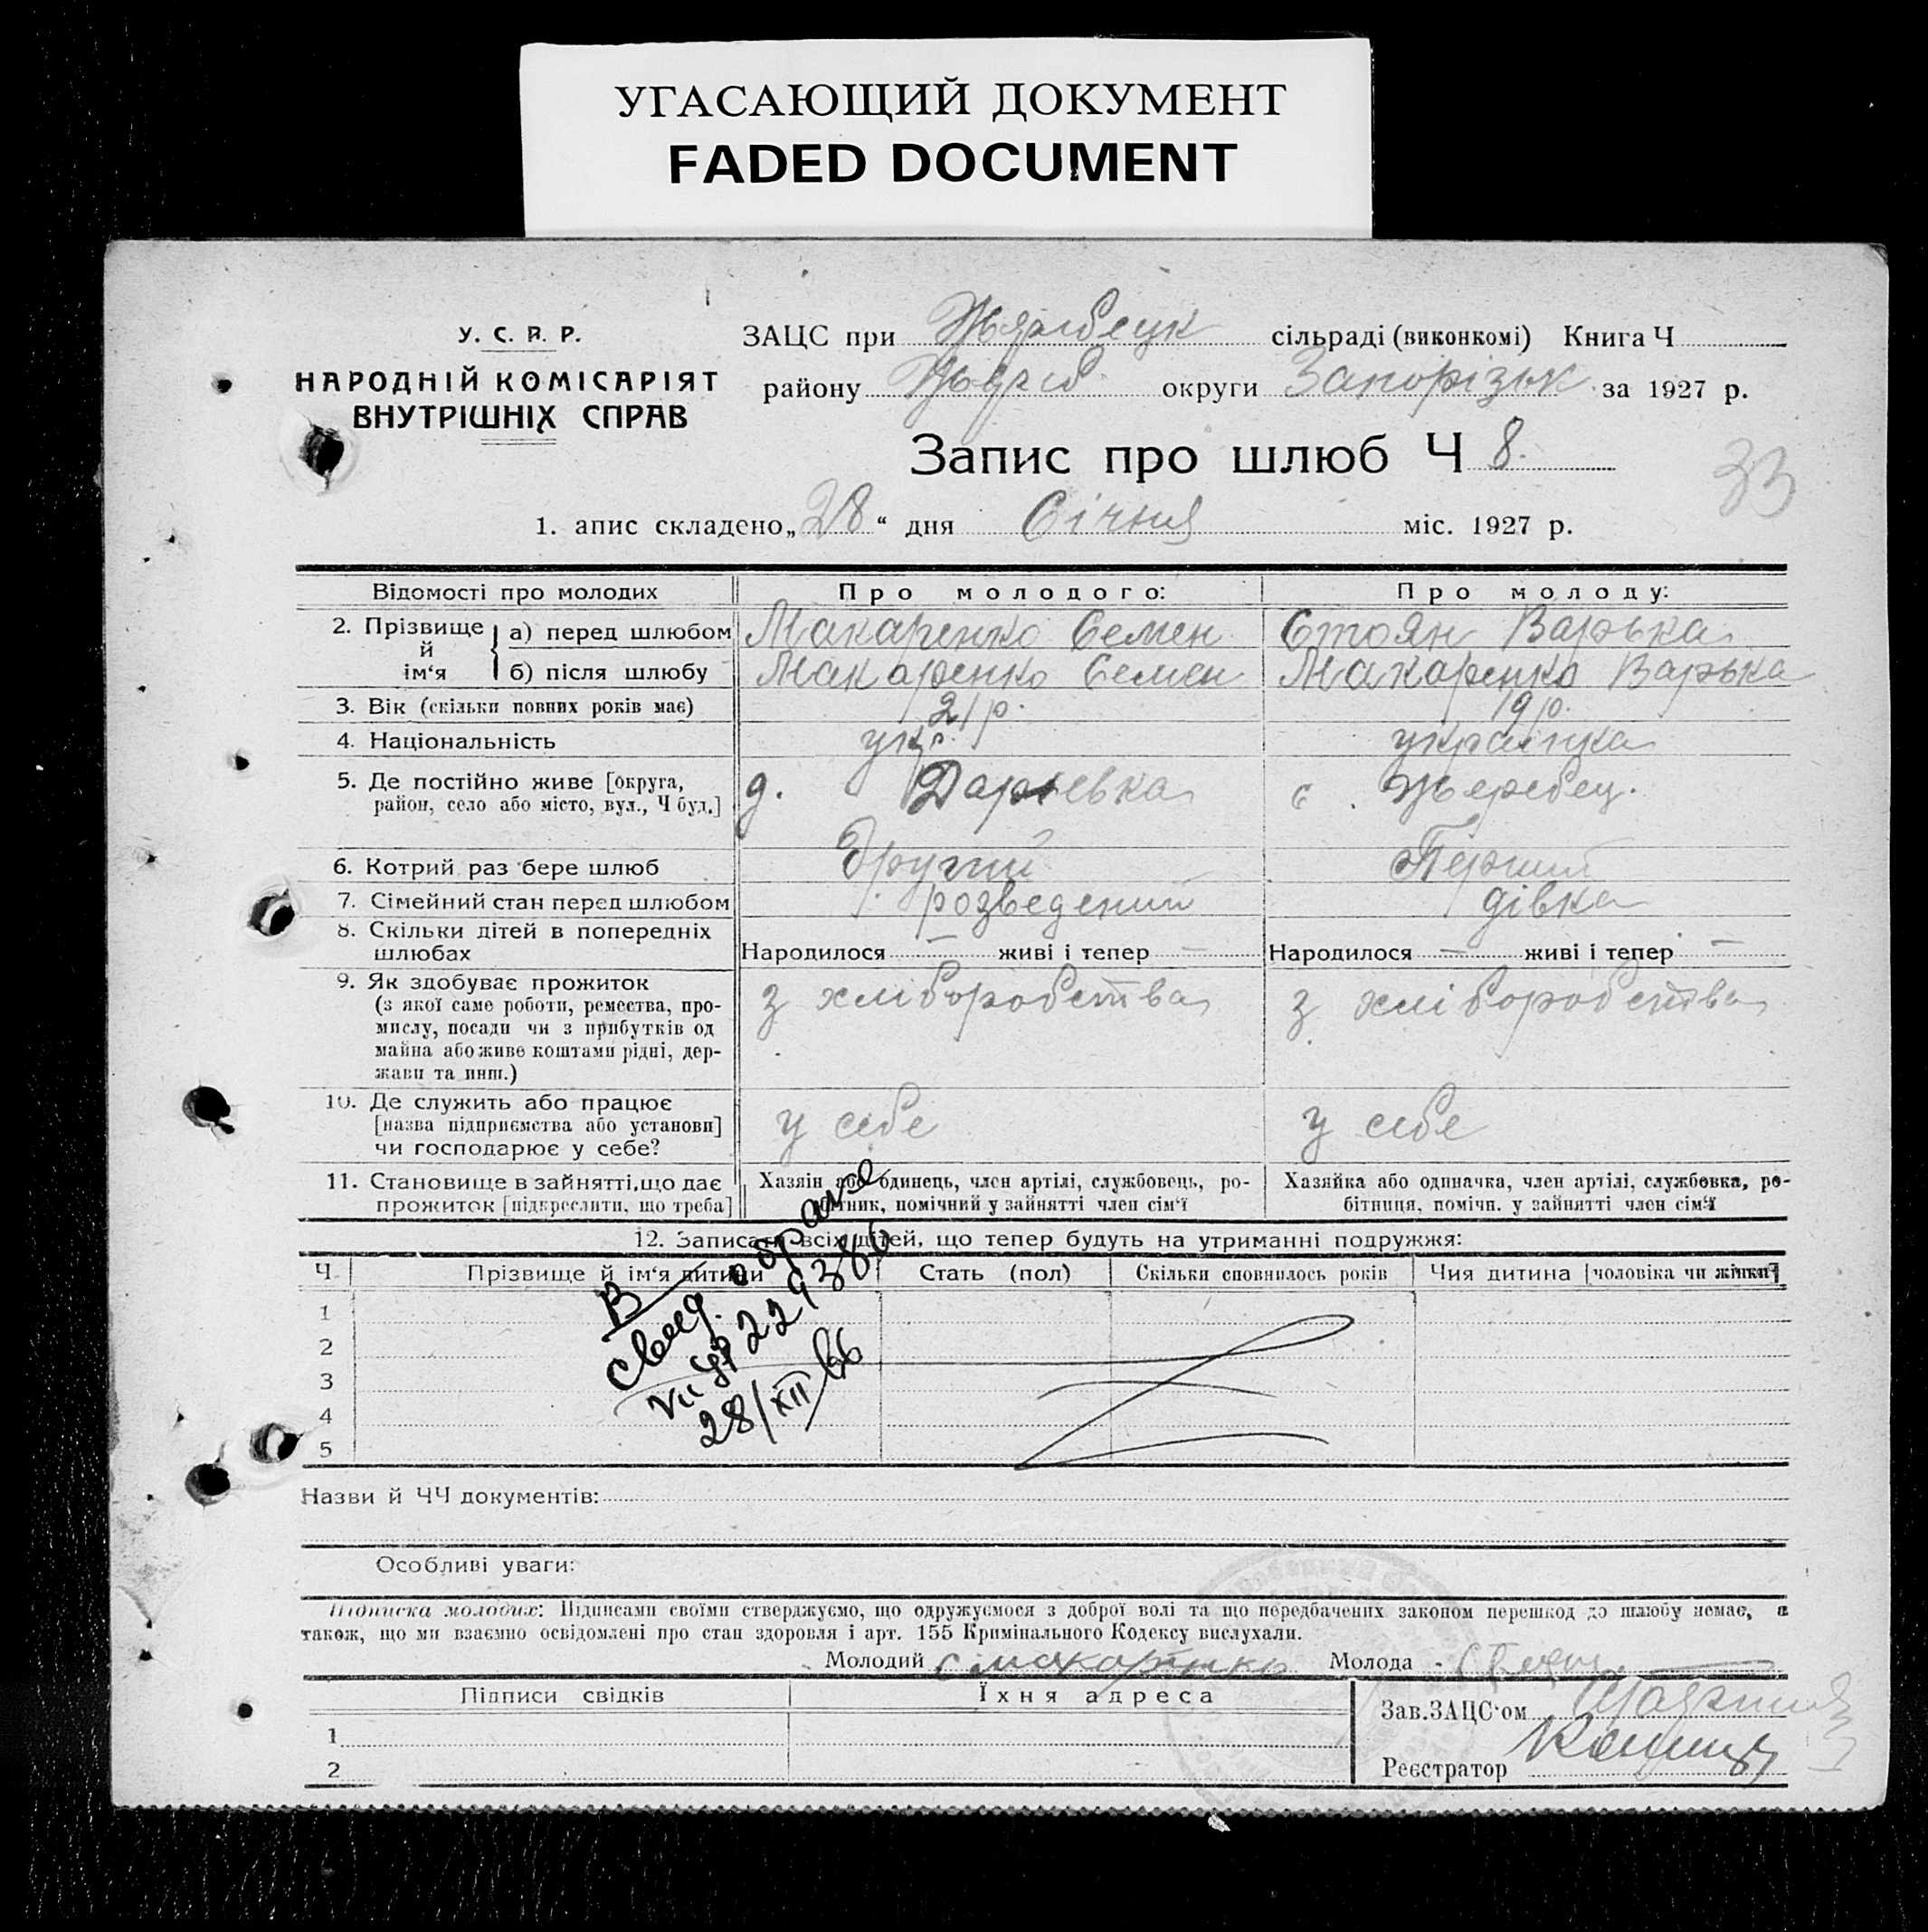 УГАСАЮЩИЙ ДОКУМЕНТ
FADED DOCUMENT
У. С. Р. Р.
НАРОДНІЙ КОМІСАРІЯТ
ВНУТРІШНІХ СПРАВ
ЗАЦС при Жеребецк сільраді (виконкомі) Книга Ч
району Жереб округи Запорізьк за 1927 р.
Запис про шлюб Ч 8.
33
1. апис складено „28“ дня Січня міс. 1927 р.
Відомості про молодих Про молодого: Про молоду:
2. Прізвище й ім‘я а) перед шлюбом Макаренко Семен Стоян Варька
б) після шлюбу Макаренко Семен Макаренко Варька
3. Вік (скільки повних років має) 21 р. 19 р.
4. Національність укр. українка
5. Де постійно живе [округа, район, село або місто, вул., Ч буд.] д. Дарьевка с. Жеребец.
6. Котрий раз бере шлюб Другий Перший
7. Сімейний стан перед шлюбом розведений дівка
8. Скільки дітей в попередніх шлюбах Народилося — живі і тепер — Народилося — живі і тепер —
9. Як здобуває прожиток з хліборобства з хліборобства
(з якої саме роботи, ремества, про-
мислу, посади чи з прибутків од
майна або живе коштами рідні, дер-
жави та инш.)
10. Де служить або працює
[назва підприємства або установи] у себе у себе
чи господарює у себе?
11. Становище в зайнятті, що дає Хазяін або одинець, член артілі, службовець, ро- Хазяйка або одиначка, член артілі, службовка, ро-
прожиток [підкреслити, що треба] бітник, помічний у зайнятті член сім‘ї бітниця, помічн. у зайнятті член сім‘ї
12. Записати всіх дітей, що тепер будуть на утриманні подружжя:
Ч Прізвище й ім‘я дитини Стать (пол) Скільки сповнилось років Чия дитина [чоловіка чи жінки]
1
2
3
4
5
В
свид. о браке
229386
28/XII 66
Назви й ЧЧ документів:
Особливі уваги:
Підписка молодих: Підписами своїми стверджуємо, що одружуємося з доброї волі та що передбачених законом перешкод до шлюбу немає, а
також, що ми взаємно освідомлені про стан здоровля і арт. 155 Кримінального Кодексу вислухали.
Молодий С Макаренко Молода Стоян
Підписи свідків Їхня адреса Зав. ЗАЦС‘ом
1
2 Реєстратор